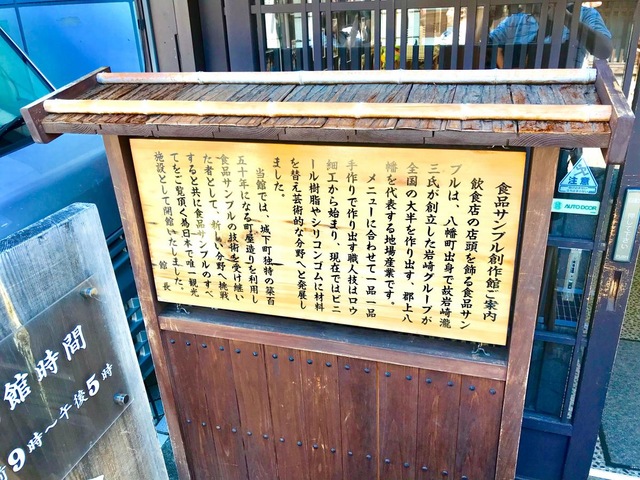 食品サンプル創作館ご案内
飲食店の店頭を飾る食品サン
プルは、八幡町出身で故岩崎瀧
三氏が創立した岩崎グループが
全国の大半を作り出す、郡上八
幡を代表する地場産業です。
メニューに合わせて一品一品
手作りで作り出す職人技はロウ
細工から始まり、現在ではビニ
ール樹脂やシリコンゴムに材料
を替え芸術的な分野へと発展し
ました。
当館では、城下町独特の築百
五十年になる町屋造りを利用し
食品サンプルの技術を受け継い
だ者として、新しい分野へ挑戦
すると共に食品サンプルのすべ
てをご覧頂く為日本で唯一観光
施設として開館いたしました。
館長
館時間
9時～午後5時
注意
AUTO DOOR